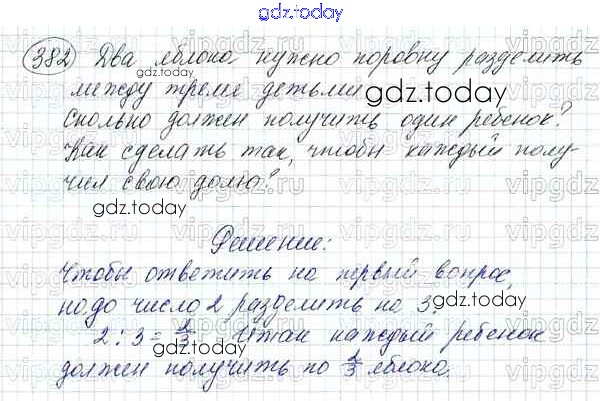 gdz.today
382 Два яблока нужно поровну разделить
между тремя детьми
gdz.today
Сколько должен получить один ребенок?
Как сделать так, чтобы каждый полу-
чил свою долю?
gdz.today
Решение:
Чтобы ответить на первый вопрос,
надо число 2 разделить на 3.
2 : 3 = 2/3 Итак каждый ребенок
должен получить по 2/3 яблока.
gdz.today
vipgdz.ru